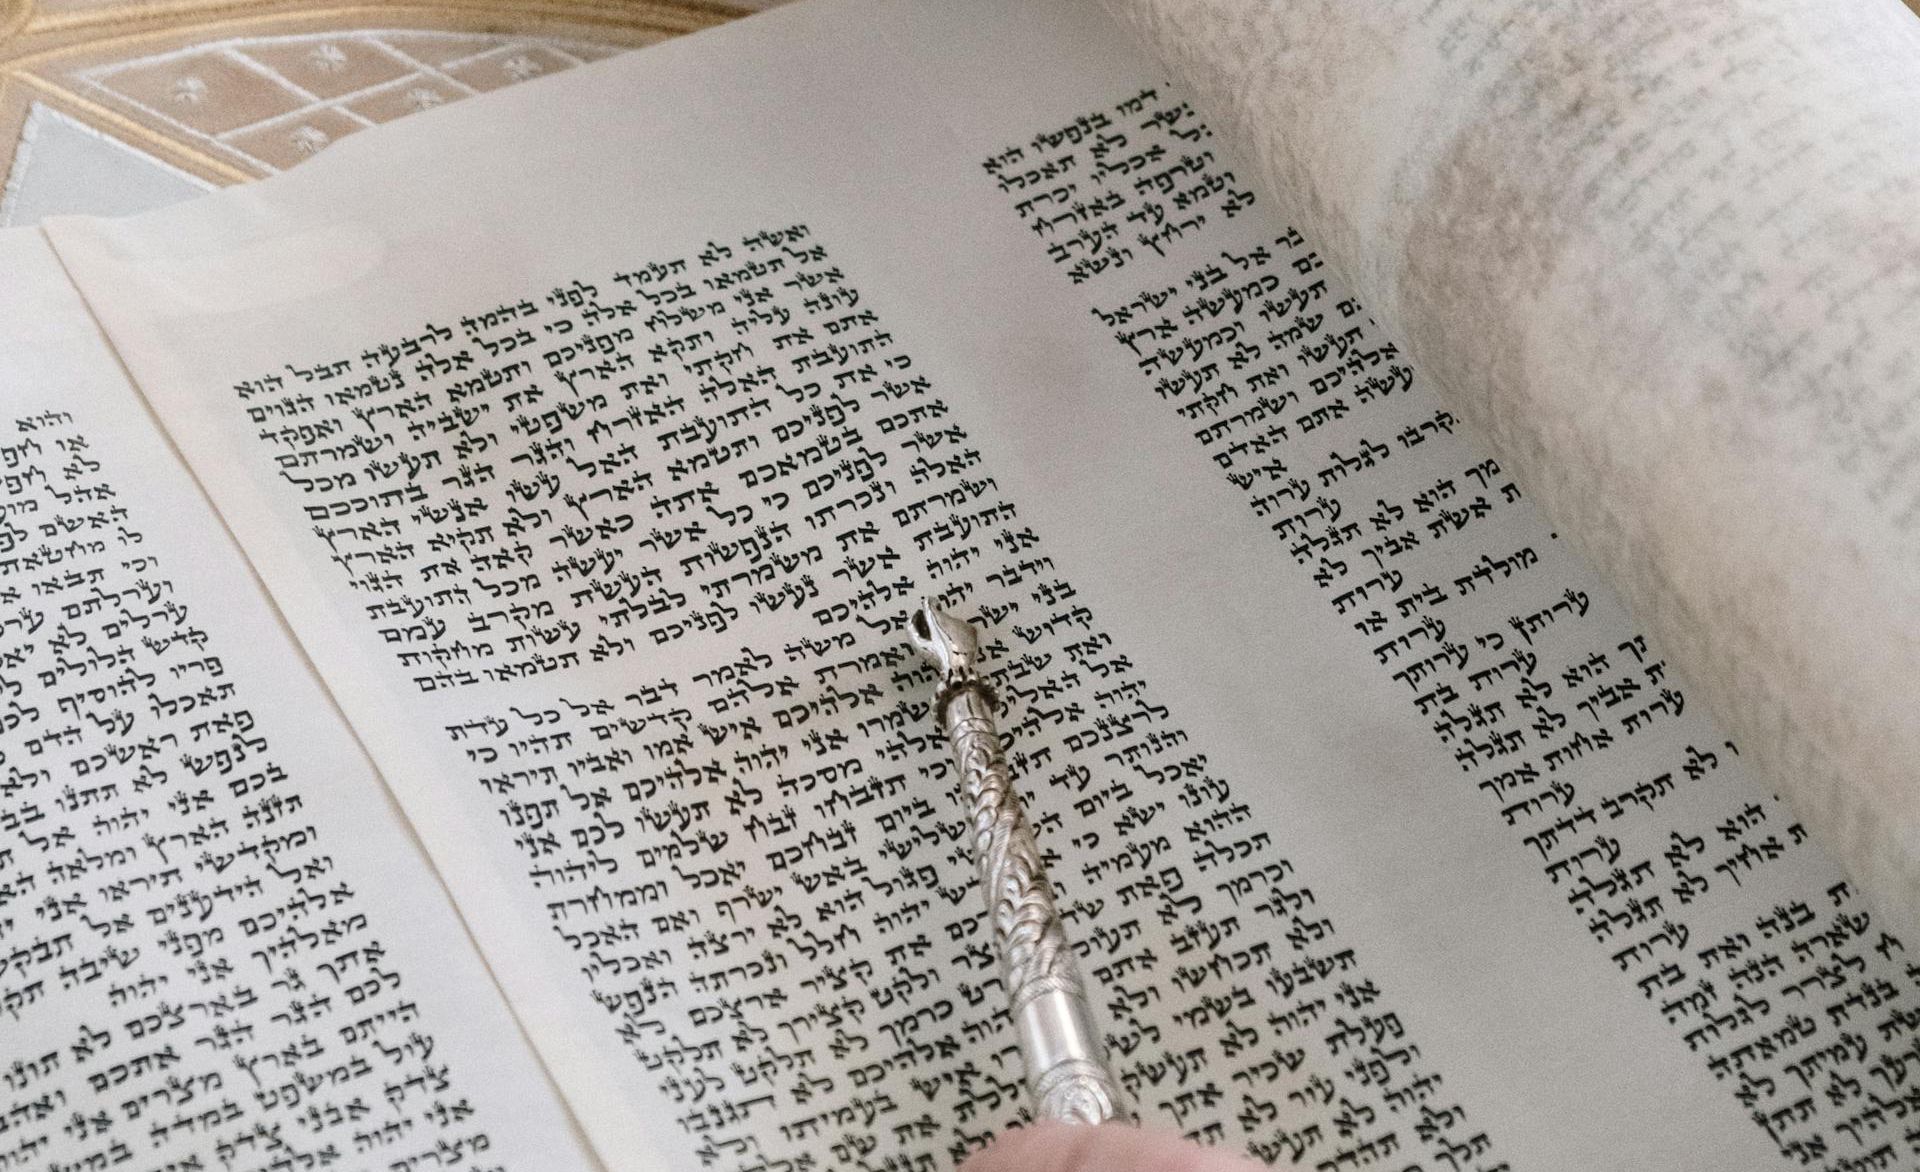 דמו בנפשו הוא
שר לא תאכלו
ל אכליו יכרת
וטרפה באזרח
וטמא עד הערב
לא ירחץ ונשא
בר אל בני ישראל
ים כמעשה ארץ
תעשו וכמעשה
ם שמה לא תעשו
תעשו ואת חקתי
אלהיכם ושמרתם
עשה אתם האדם
איש
קרבו לגלות ערוה
ערות
מך הוא לא תגלה
ת אשת אביך לא
ערות
מולדת בית או
ערות
ערותן כי ערותך
ערות בת
יך הוא לא תגלה
ת אביך לא תגלה
ערות אחות אמך
ערות
לא תקרב דדתך
ערות
הוא לא תגלה
ת אחיך לא תגלה
ערות
בתה ואת בת
שארה הנה זמה
לצרר לגלות
בנדת טמאתה
עמיתך לא
ואשה לא תעמד לפני בהמה לרבעה תבל הוא
אל תטמאו בכל אלה כי בכל אלה נטמאו הגוים
אשר אני משלח מפניכם ותטמא הארץ ואפקד
עונה עליה ותקא הארץ את ישביה ושמרתם
אתם את חקתי ואת משפטי ולא תעשו מכל
התועבת האלה האזרח והגר הגר בתוככם
כי את כל התועבת האל עשו אנשי הארץ
אשר לפניכם ותטמא הארץ ולא תקיא הארץ
אתכם בטמאכם אתה כאשר קאה את הגוי
אשר לפניכם כי כל אשר יעשה מכל התועבת
האלה ונכרתו הנפשות העשת מקרב עמם
ושמרתם את משמרתי לבלתי עשות מחקות
התועבת אשר נעשו לפניכם ולא תטמאו בהם
אני יהוה אלהיכם
וידבר יהוה אל משה לאמר דבר אל כל עדת
בני ישר ואמרת אלהם קדשים תהיו כי
קדוש אני הוה אלהיכם איש אמו ואביו תיראו
ואת שבת שמרו אני יהוה אלהיכם אל תפנו
אל האלי אלהי מסכה לא תעשו לכם אני
יהוה אלהיכם וכי תזבחו זבח שלמים ליהוה
לרצנכם תזב ביום זבחכם יאכל וממחרת
והנותר עד שלישי באש ישרף ואם האכל
יאכל ביום הש י פגול הוא לא ירצה ואכליו
עונו ישא כי דש יהוה חלל ונכרתה הנפש
ההוא מעמיה רכם את קציר ארצכם לא
תכלה פאת שד צר ולקט קצירך לא תלקט
וכרמך לא תעול רט כרמך לא תלקט לעני
ולגר תעזב אתם הוה אלהיכם לא תגנבו
ולא תכחשו ולא רו איש בעמיתו ולא
תשבעו בשמי לשק ללת את שם
אני יהוה לא תעשק
פעלת שכיר אתך
ולפני עור לא
יהוה לא תעש
ולא תהדר
תלך
והוא
או חפ
לא חפ
אהל מוע
האשם לפ
לו מחטאת
וכי תבאו א
וערלתם ער
ערלים לא יא
קדש הלולים ל
פריו להוסיף לכ
תאכלו על הדם
פאת ראשכם ולא
לנפש לא תתנו בב
בכם אני יהוה אל ת
תזנה הארץ ומלאה הא
ומקדשי תיראו אני
ואל הידענים אל תבקש
אלהיכם מפני שיבה תק
מאלהיך אני יהוה
אתך גר בארצכם לא תונו
לכם הגר הגר אתכם ואהב
הייתם בארץ מצרים אני יהו
עול במשפט במדה במש
צדק אבני צדק אי
אני יהוה אלה
מצרים